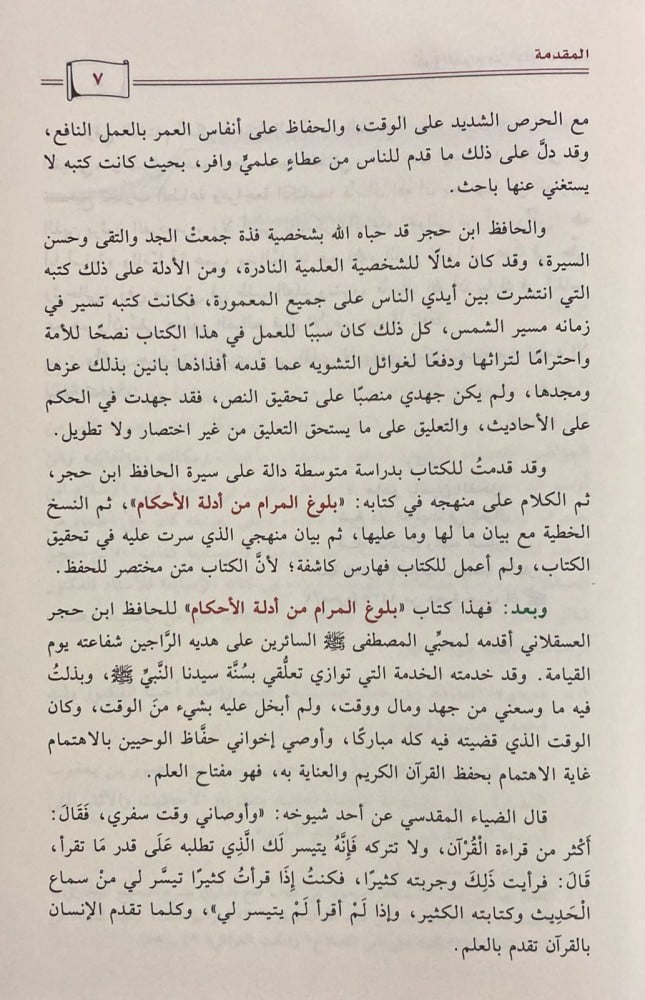 المقدمة
٧
مع الحرص الشديد على الوقت، والحفاظ على أنفاس العمر بالعمل النافع،
وقد دلَّ على ذلك ما قدم للناس من عطاءٍ علميٍّ وافر، بحيث كانت كتبه لا
يستغني عنها باحث.
والحافظ ابن حجر قد حباه الله بشخصية فذة جمعتْ الجد والتقى وحسن
السيرة، وقد كان مثالًا للشخصية العلمية النادرة، ومن الأدلة على ذلك كتبه
التي انتشرت بين أيدي الناس على جميع المعمورة، فكانت كتبه تسير في
زمانه مسير الشمس، كل ذلك كان سببًا للعمل في هذا الكتاب نصحًا للأمة
واحترامًا لتراثها ودفعًا لغوائل التشويه عما قدمه أفذاذها بانين بذلك عزها
ومجدها، ولم يكن جهدي منصبًا على تحقيق النص، فقد جهدت في الحكم
على الأحاديث، والتعليق على ما يستحق التعليق من غير اختصار ولا تطويل.
وقد قدمتُ للكتاب بدراسة متوسطة دالة على سيرة الحافظ ابن حجر،
ثم الكلام على منهجه في كتابه: «بلوغ المرام من أدلة الأحكام»، ثم النسخ
الخطية مع بيان ما لها وما عليها، ثم بيان منهجي الذي سرت عليه في تحقيق
الكتاب، ولم أعمل للكتاب فهارس كاشفة؛ لأنَّ الكتاب متن مختصر للحفظ.
وبعد: فهذا كتاب «بلوغ المرام من أدلة الأحكام» للحافظ ابن حجر
العسقلاني أقدمه لمحبِّي المصطفى ﷺ السائرين على هديه الرَّاجين شفاعته يوم
القيامة. وقد خدمته الخدمة التي توازي تعلُّقي بسُنَّة سيدنا النَّبيِّ ﷺ، وبذلتُ
فيه ما وسعني من جهد ومال ووقت، ولم أبخل عليه بشيء منَ الوقت، وكان
الوقت الذي قضيته فيه كله مباركًا، وأوصي إخواني حفَّاظ الوحيين بالاهتمام
غاية الاهتمام بحفظ القرآن الكريم والعناية به، فهو مفتاح العلم.
قال الضياء المقدسي عن أحد شيوخه: «وأوصاني وقت سفري، فَقَالَ:
أَكْثر من قراءة الْقُرْآن، ولا تتركه فَإِنَّهُ يتيسر لَك الَّذِي تطلبه عَلَى قدر مَا تقرأ،
قَالَ: فرأيت ذَلِكَ وجربته كثيرًا، فكنتُ إِذَا قرأتُ كثيرًا تيسَّر لي منْ سماع
الْحَدِيث وكتابته الكثير، وإذا لَمْ أقرأ لَمْ يتيسر لي»، وكلما تقدم الإنسان
بالقرآن تقدم بالعلم.